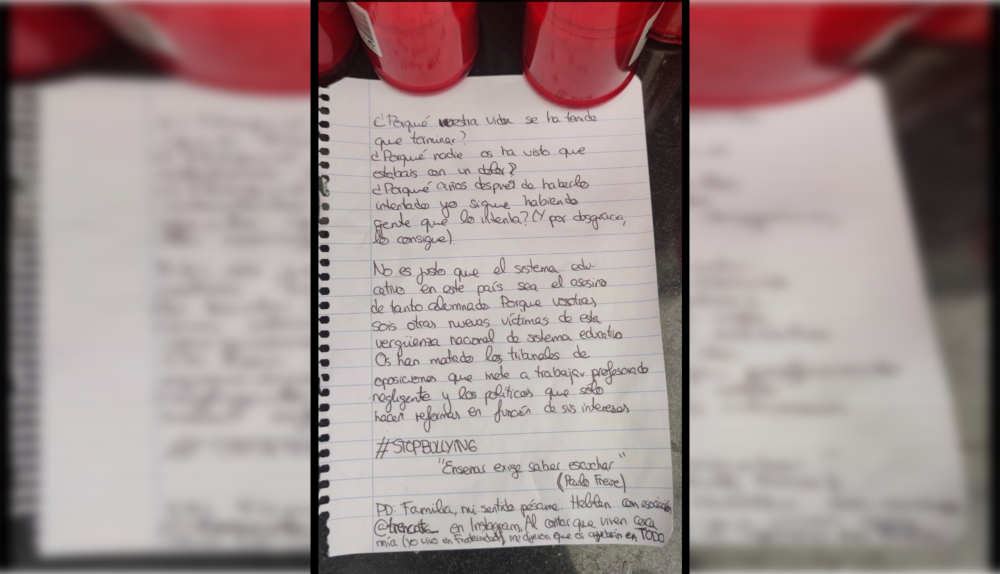 ¿Porqué vuestra vida se ha tenido
que terminar?
¿Porqué nadie os ha visto que
estabais con un dolor?
¿Porqué años después de haberlo
intentado yo sigue habiendo
gente que lo intenta? (Y por desgracia,
lo consigue)
No es justo que el sistema edu-
cativo en este país sea el asesino
de tanto alumnado. Porque vosotras
sois otras nuevas víctimas de esta
vergüenza nacional de sistema educativo
Os han matado los tribunales de
oposiciones que mete a trabajar profesorado
negligente y los políticos que sólo
hacen reformas en función de sus intereses
#STOPBULLYING
"Enseñar exige saber escuchar"
(Paulo Freire)
PD: Familia, mi sentido pésame. Hablen con
en Instagram. Al contar que viven cerca
mía (yo vivo en me dijeron que os en TODO